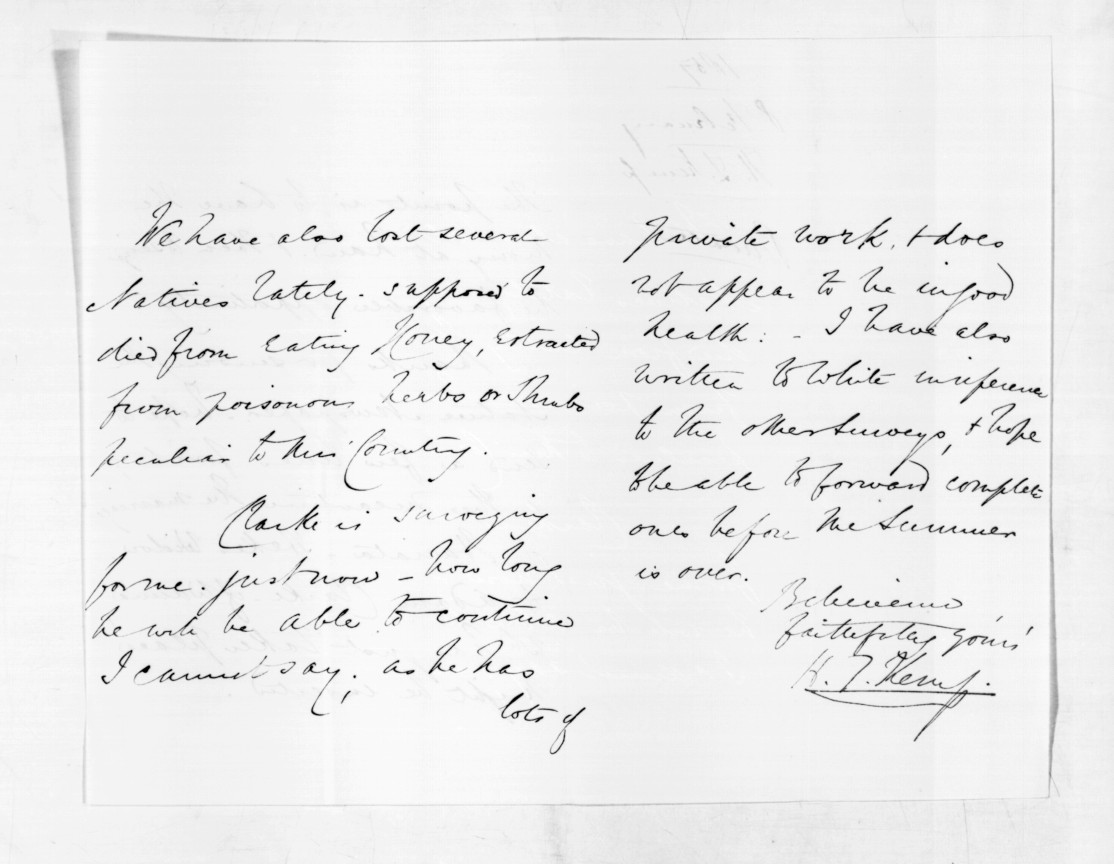 We have also lost several
Natives lately. supposed to
died from Eating Honey, Extracted
from poisonous herbs or Shrubs
peculiar to this Country.
Clarke is surveying
for me just now – how long
he will be able to continue
I cannot say, as he has
lots of
private work, & does
not appear to be in good
health: – I have also
written to White in reference
to the other Surveys, & hope
to be able to forward complete
ones before the Summer
is over.
Believe me
faithfully yours
H. T. Kemp.